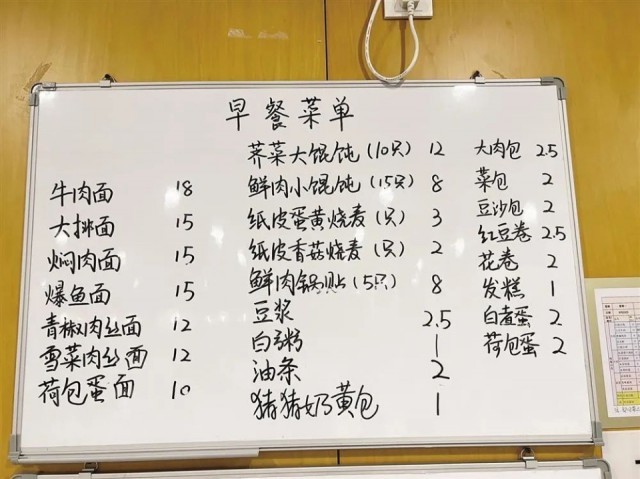 早餐菜单
牛肉面 18
大排面 15
焖肉面 15
爆鱼面 15
青椒肉丝面 12
雪菜肉丝面 12
荷包蛋面 10
荠菜大馄饨(10只) 12
鲜肉小馄饨(15只) 8
纸皮蛋黄烧麦(只) 3
纸皮香菇烧麦(只) 2
鲜肉锅贴(5只) 8
豆浆 2.5
白粥 1
油条 2
猪猪奶黄包 1
大肉包 2.5
菜包 2
豆沙包 2
红豆卷 2.5
花卷 2
发糕 1
白煮蛋 2
荷包蛋 2